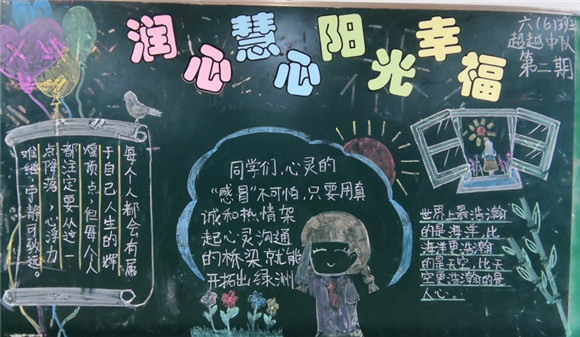 润心慧心阳光幸福
六(6)班
超越中队
第二期
每个人都会有属
于自己人生的辉
煌顶点,但每个人
都注定要从这一
点降落,心浮力
难继,宁静可致远。
同学们,心灵的
"感冒"不可怕,只要用真
诚和热情架
起心灵沟通
的桥梁就能
开拓出绿洲
世界上最浩瀚
的是海洋,比
海洋更浩瀚
的是天空,比天
空更浩瀚的是
人心。